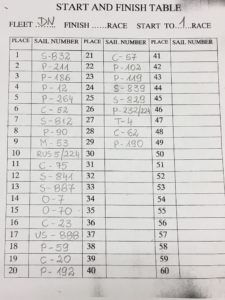 START AND FINISH TABLE
FLEET DN FINISH ......RACE START TO 1 RACE
PLACE SAIL NUMBER PLACE SAIL NUMBER PLACE SAIL NUMBER
1 S-832 21 C-57 41
2 P-211 22 P-102 42
3 P-186 23 P-119 43
4 P-12 24 S-839 44
5 P-264 25 S-829 45
6 C-52 26 P-232/224 46
7 S-812 27 T-4 47
8 P-90 28 C-62 48
9 M-53 29 P-190 49
10 RUS 5/224 30 50
11 C-75 31 51
12 S-841 32 52
13 S-887 33 53
14 O-7 34 54
15 O-70 35 55
16 C-23 36 56
17 US-898 37 57
18 P-59 38 58
19 C-20 39 59
20 P-192 40 60